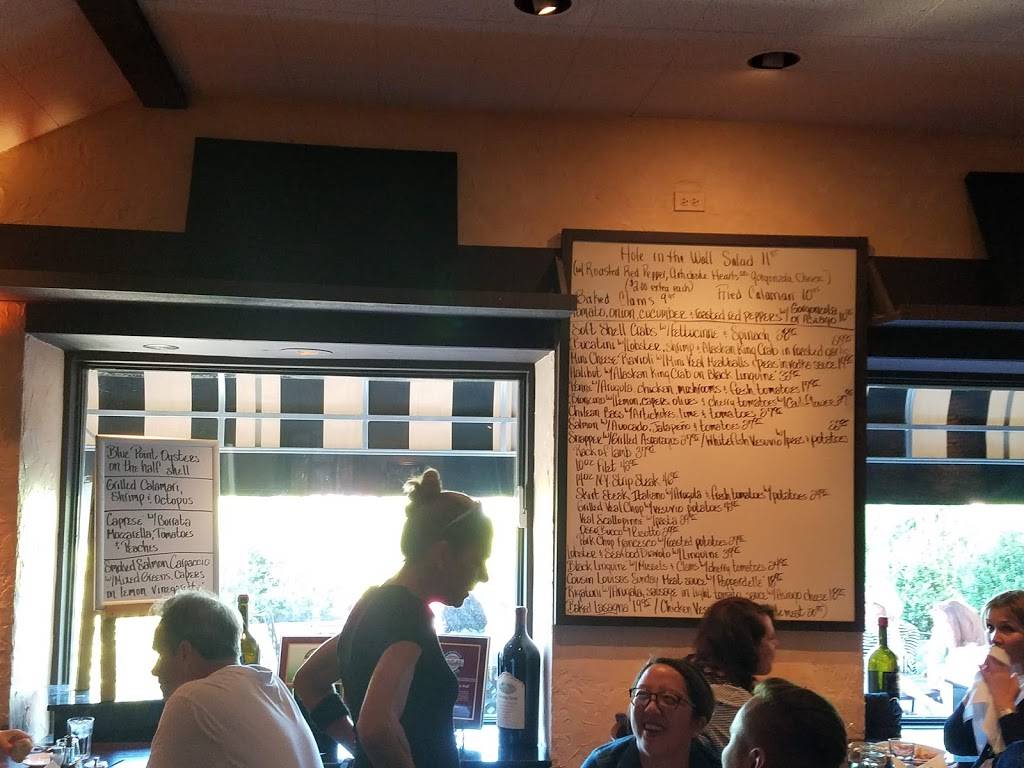 Blue Point Oysters
on the half shell
Grilled Calamari,
Shrimp & Octopus
Caprese w/Burrata
Mozzarella, Tomatoes
& Peaches
Smoked Salmon Carpaccio
w/Mixed Greens, Capers
on lemon vinegarette
Hole in the Wall Salad 11
(w/ Roasted Red Pepper, Artichoke Hearts Gorgonzola Cheese)
($2.00 extra each)
Baked Clams 9 Fried Calamari 10
Tomato, onion, cucumber & roasted red peppers w/ Gorgonzola
or Asiago 10
Soft Shell Crabs w/Fettucine & Spinach 38
Bucatini w/Lobster, Shrimp & Alaskan King Crab in roasted
Mini Cheese Ravioli w/Mini Veal Meatballs & Peas in vodka sauce 19
Halibut w/Alaskan King Crab on Black Linguine
Penne w/Arugula, chicken, mushrooms & fresh tomatoes 19
w/Lemon, capers, olives & cherry tomatoes w/Cauliflower
Chilean Bass w/Artichokes, lime & tomatoes
Salmon w/Avocado, Jalapeño & tomatoes 29
Snapper w/Grilled Asparagus 29 / Whitefish Vesuvio w/peas & potatoes
Rack of lamb
10oz Filet
14oz NY Strip Steak
Skirt Steak, Italiano w/Arugula & fresh tomatoes w/potatoes 29
Grilled Veal Chop w/vesuvio potatoes
Veal Scallopini w/pasta 29
Osso Bucco w/Risotto
Pork Chop Francesco w/roasted potatoes 29
Lobster & Seafood Diavolo w/Linguine 39
Black Linguine w/Mussels & Clams w/cherry tomatoes 24
Cousin Louises Sunday Meat sauce w/Pappardelle 18
Rigatoni w/Arugula, sausage in light tomato sauce w/Asiago cheese 18
Baked Lasagna 19 / Chicken